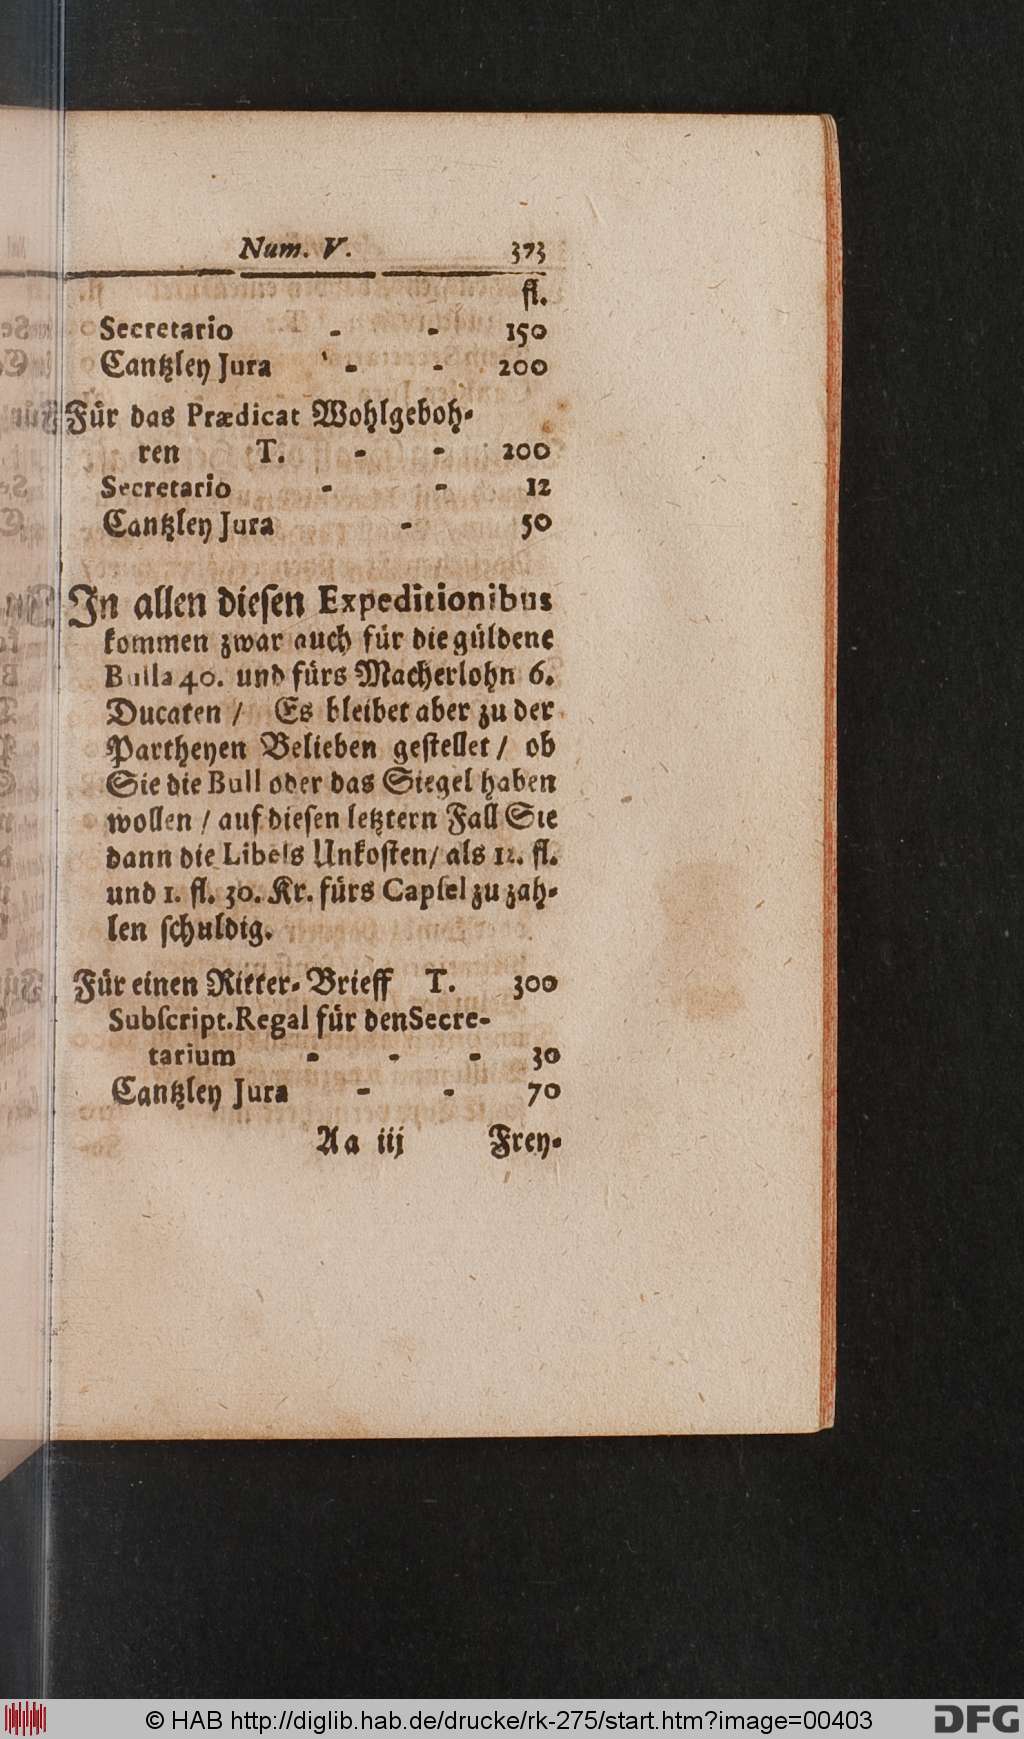 Num. V. 373
fl.
Secretario - - 150
Cantzley Jura - - 200
Für das Prædicat Wohlgeboh-
ren T. - - 200
Secretario - - 12
Cantzley Jura - 50
In allen dieſen Expeditionibus
kommen zwar auch für die güldene
Bulla 40. und fürs Macherlohn 6.
Ducaten / Es bleibet aber zu der
Partheyen Belieben geſtellet / ob
Sie die Bull oder das Siegel haben
wollen / auf dieſen letztern Fall Sie
dann die Libels Unkoſten / als 12. fl.
und 1. fl. 30. Kr. fürs Capſel zu zah-
len ſchuldig.
Für einen Ritter-Brieff T. 300
Subſcript. Regal für den Secre-
tarium - - - 30
Cantzley Jura - - 70
Aa iij Frey-
© HAB http://diglib.hab.de/drucke/rk-275/start.htm?image=00403
DFG